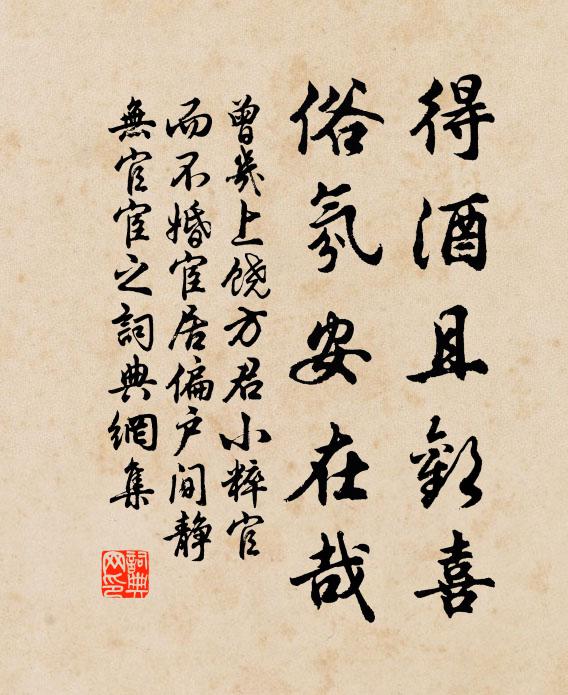 得酒且歡喜
俗氛安在哉
曾幾上饶方君小粹官
而不婚宦居偏户间静
無官宦之詞典網集
詞典
网印